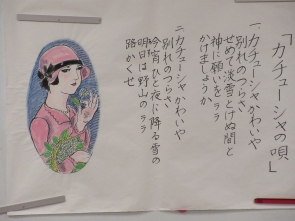 「カチューシャの唄」
一、カチューシャかわいや
別れのつらさ
せめて淡雪とけぬ間と
神に願いを ララ
かけましょうか
二、カチューシャかわいや
別れのつらさ
今宵ひと夜に降る雪の
明日は野山の ララ
路かくせ